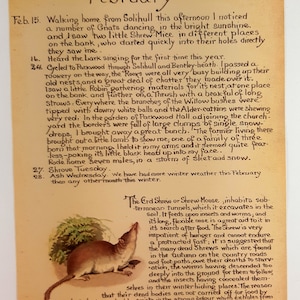 February
Feb. 15. Walking home from Solihull this afternoon I noticed
a number of Gnats dancing in the bright sunshine,
and I saw two little Shrew Mice in different places
on the bank, who darted quickly into their holes directly
they saw me.
16. Heard the Lark singing for the first time this year.
24. Cycled to Packwood through Solihull and Bentley heath. I passed a
rookery on the way, the Rooks were all very busy building up their
old nests, and a great deal of chatter they made over it.
I saw a little Robin gathering materials for its nest, at one place
on the bank, and further on, a Thrush with a beakful of long
straws. Everywhere the branches of the Willow bushes were
tipped with downy white balls and the Alder-catkins were shewing
very red. In the garden of Packwood Hall adjoining the church-
yard the borders were full of large clumps of single snow-
drops. I brought away a great bunch. The farmer living there
brought out a little lamb to show me, one of a family of three
born that morning. I held it in my arms and it seemed quite fear-
less - poking its little black head up into my face.
Rode home seven miles, in a storm of sleet and snow.
27. Shrove Tuesday.
28. Ash Wednesday. We have had more winter weather this February
than any other month this winter.
"The Erd Shrew or Shrew Mouse, inhabits sub-
terranean tunnels, which it excavates in the
soil. It feeds upon insects and worms, and
its long, flexible nose is a great aid to it in
its search after food. The Shrew is very
impatient of hunger and cannot endure
a protracted fast; it is suggested that
the many dead Shrews which are found
in the Autumn on the country roads
and foot-paths, owe their deaths to starv-
ation, the worms having descended too
deeply into the ground for them to follow,
and the insects having concealed them-
selves in their winter hiding places. The reason
that their dead bodies are not carried off or eaten by